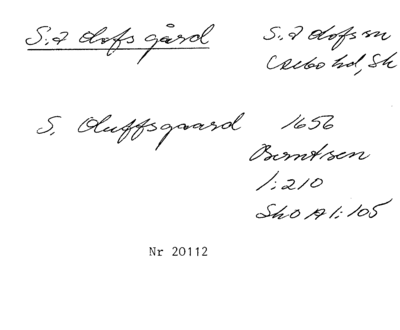 S:t Olofs gård
S:t Olofs sn
Crebo hd, Sk
S. Oluffsgaard 1656
Berntsen
1:210
SkO A 1:105
Nr 20112